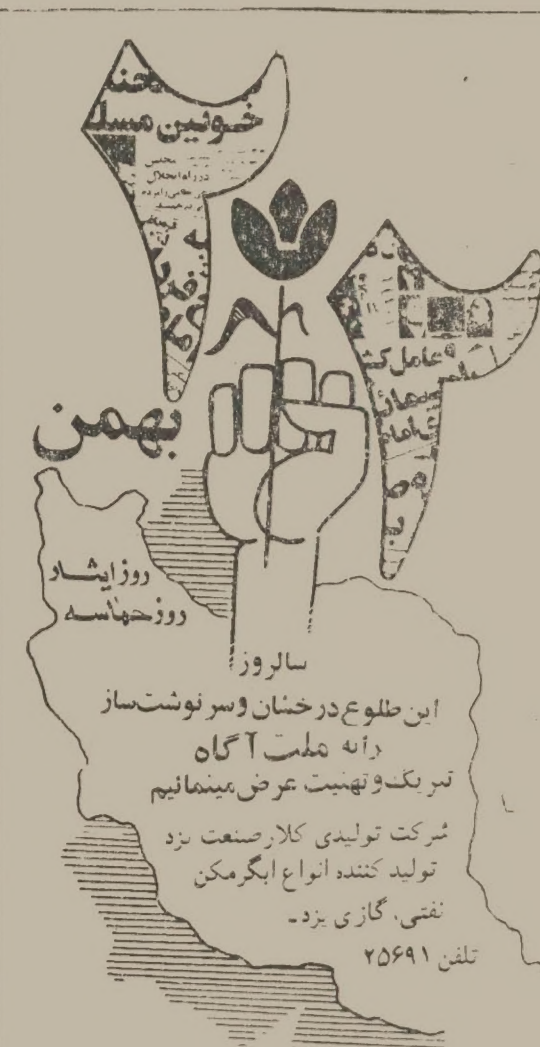 ۲۲
خونین مسل
مجلس
در راه انحلال
عامل کش
امام
بهمن
روز ایثار
روز حماسه
سالروز
این طلوع درخشان و سرنوشت‌ساز
را به ملت آگاه
تبریک و تهنیت عرض مینمائیم
شرکت تولیدی کلار صنعت یزد
تولید کننده انواع ابگرمکن
نفتی، گازی یزد-
تلفن ۲۵۶۹۱